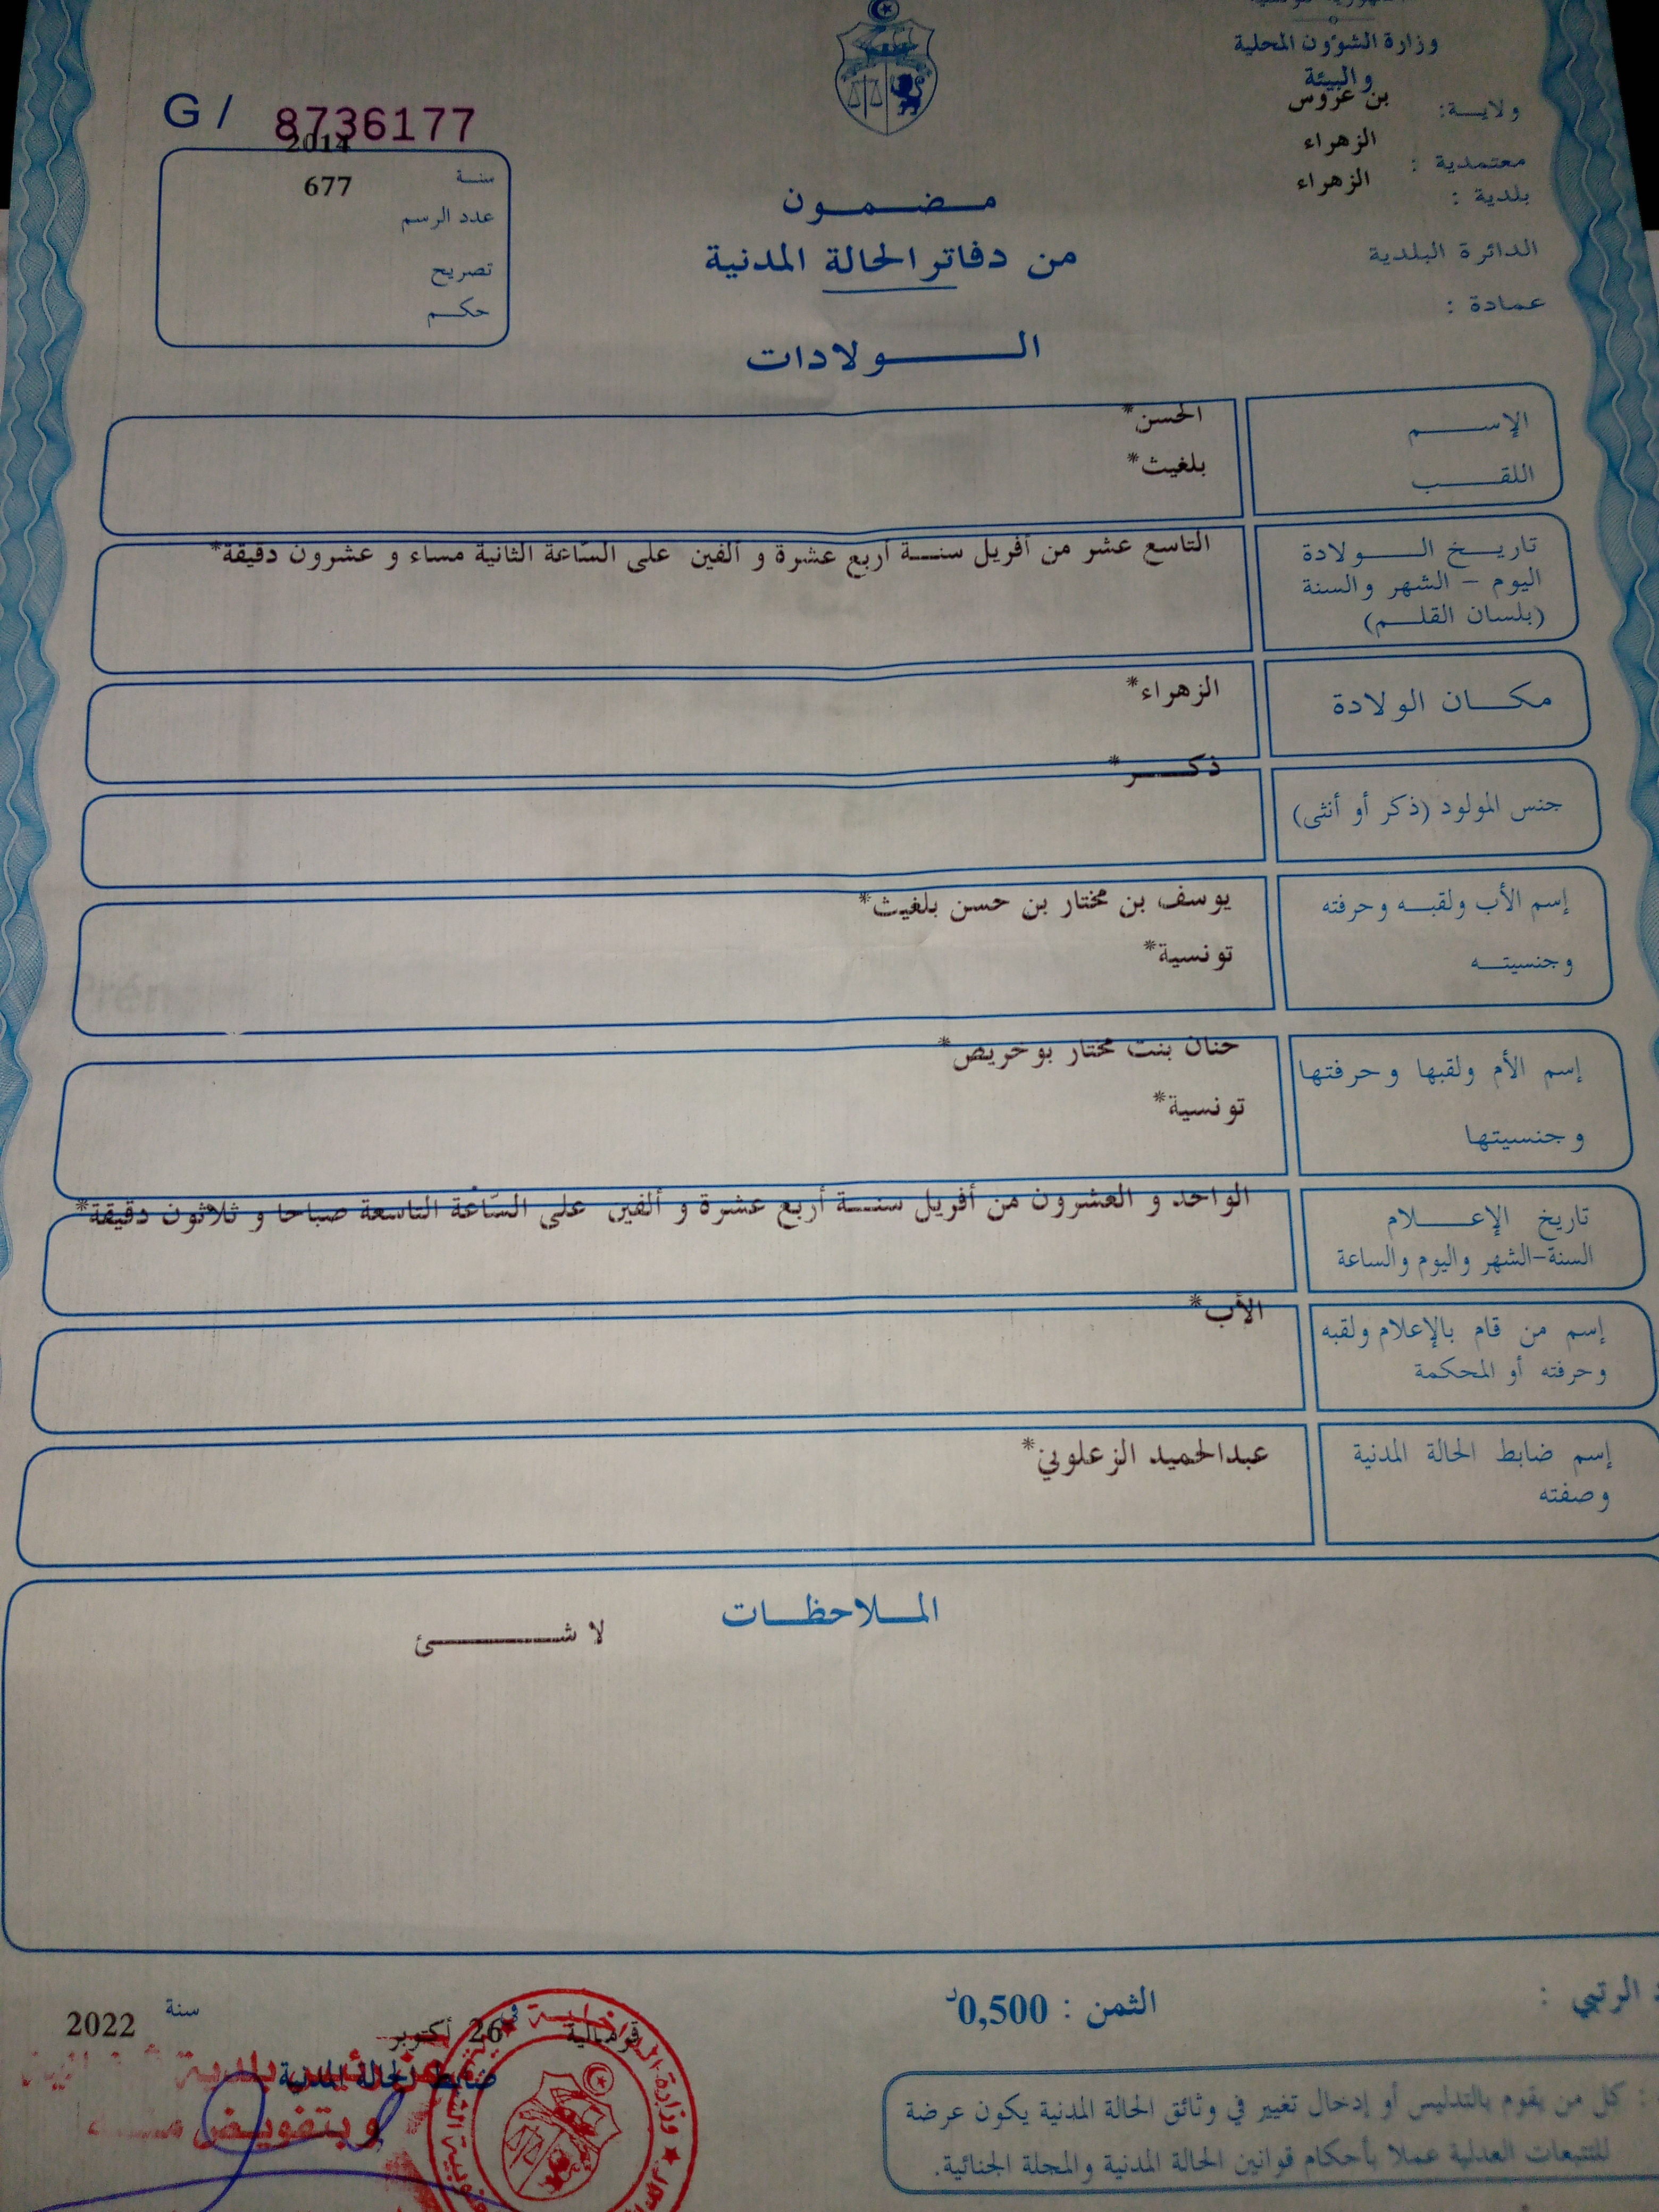 وزارة الشؤون المحلية
والبيئة
ولاية: بن عروس
معتمدية : الزهراء
بلدية : الزهراء
الدائرة البلدية
عمادة :
G / 8736177
سنة 2014
عدد الرسم 677
تصريح
حكم
مضمون
من دفاتر الحالة المدنية
الولادات
الإسم الحسن*
اللقب بلغيث*
تاريخ الولادة
اليوم - الشهر والسنة
(بلسان القلم)
التاسع عشر من أفريل سنة أربع عشرة و ألفين على السّاعة الثانية مساء و عشرون دقيقة*
مكان الولادة الزهراء*
جنس المولود (ذكر أو أنثى) ذكر*
إسم الأب ولقبه وحرفته يوسف بن مختار بن حسن بلغيث*
وجنسيته تونسية*
إسم الأم ولقبها وحرفتها حنان بنت مختار بوخريص*
وجنسيتها تونسية*
تاريخ الإعلام
السنة-الشهر واليوم والساعة
الواحد و العشرون من أفريل سنة أربع عشرة و ألفين على السّاعة التاسعة صباحا و ثلاثون دقيقة*
إسم من قام بالإعلام ولقبه
وحرفته أو المحكمة
الأب*
إسم ضابط الحالة المدنية
وصفته
عبدالحميد الزعلوني*
الملاحظات
لا شئ
الرتبي :
الثمن : 0,500د
قرمبالية في 26 أكتوبر سنة 2022
ضابط الحالة المدنية
وبتفويض منه
كل من يقوم بالتدليس أو إدخال تغيير في وثائق الحالة المدنية يكون عرضة
للتتبعات العدلية عملا بأحكام قوانين الحالة المدنية والمجلة الجنائية.